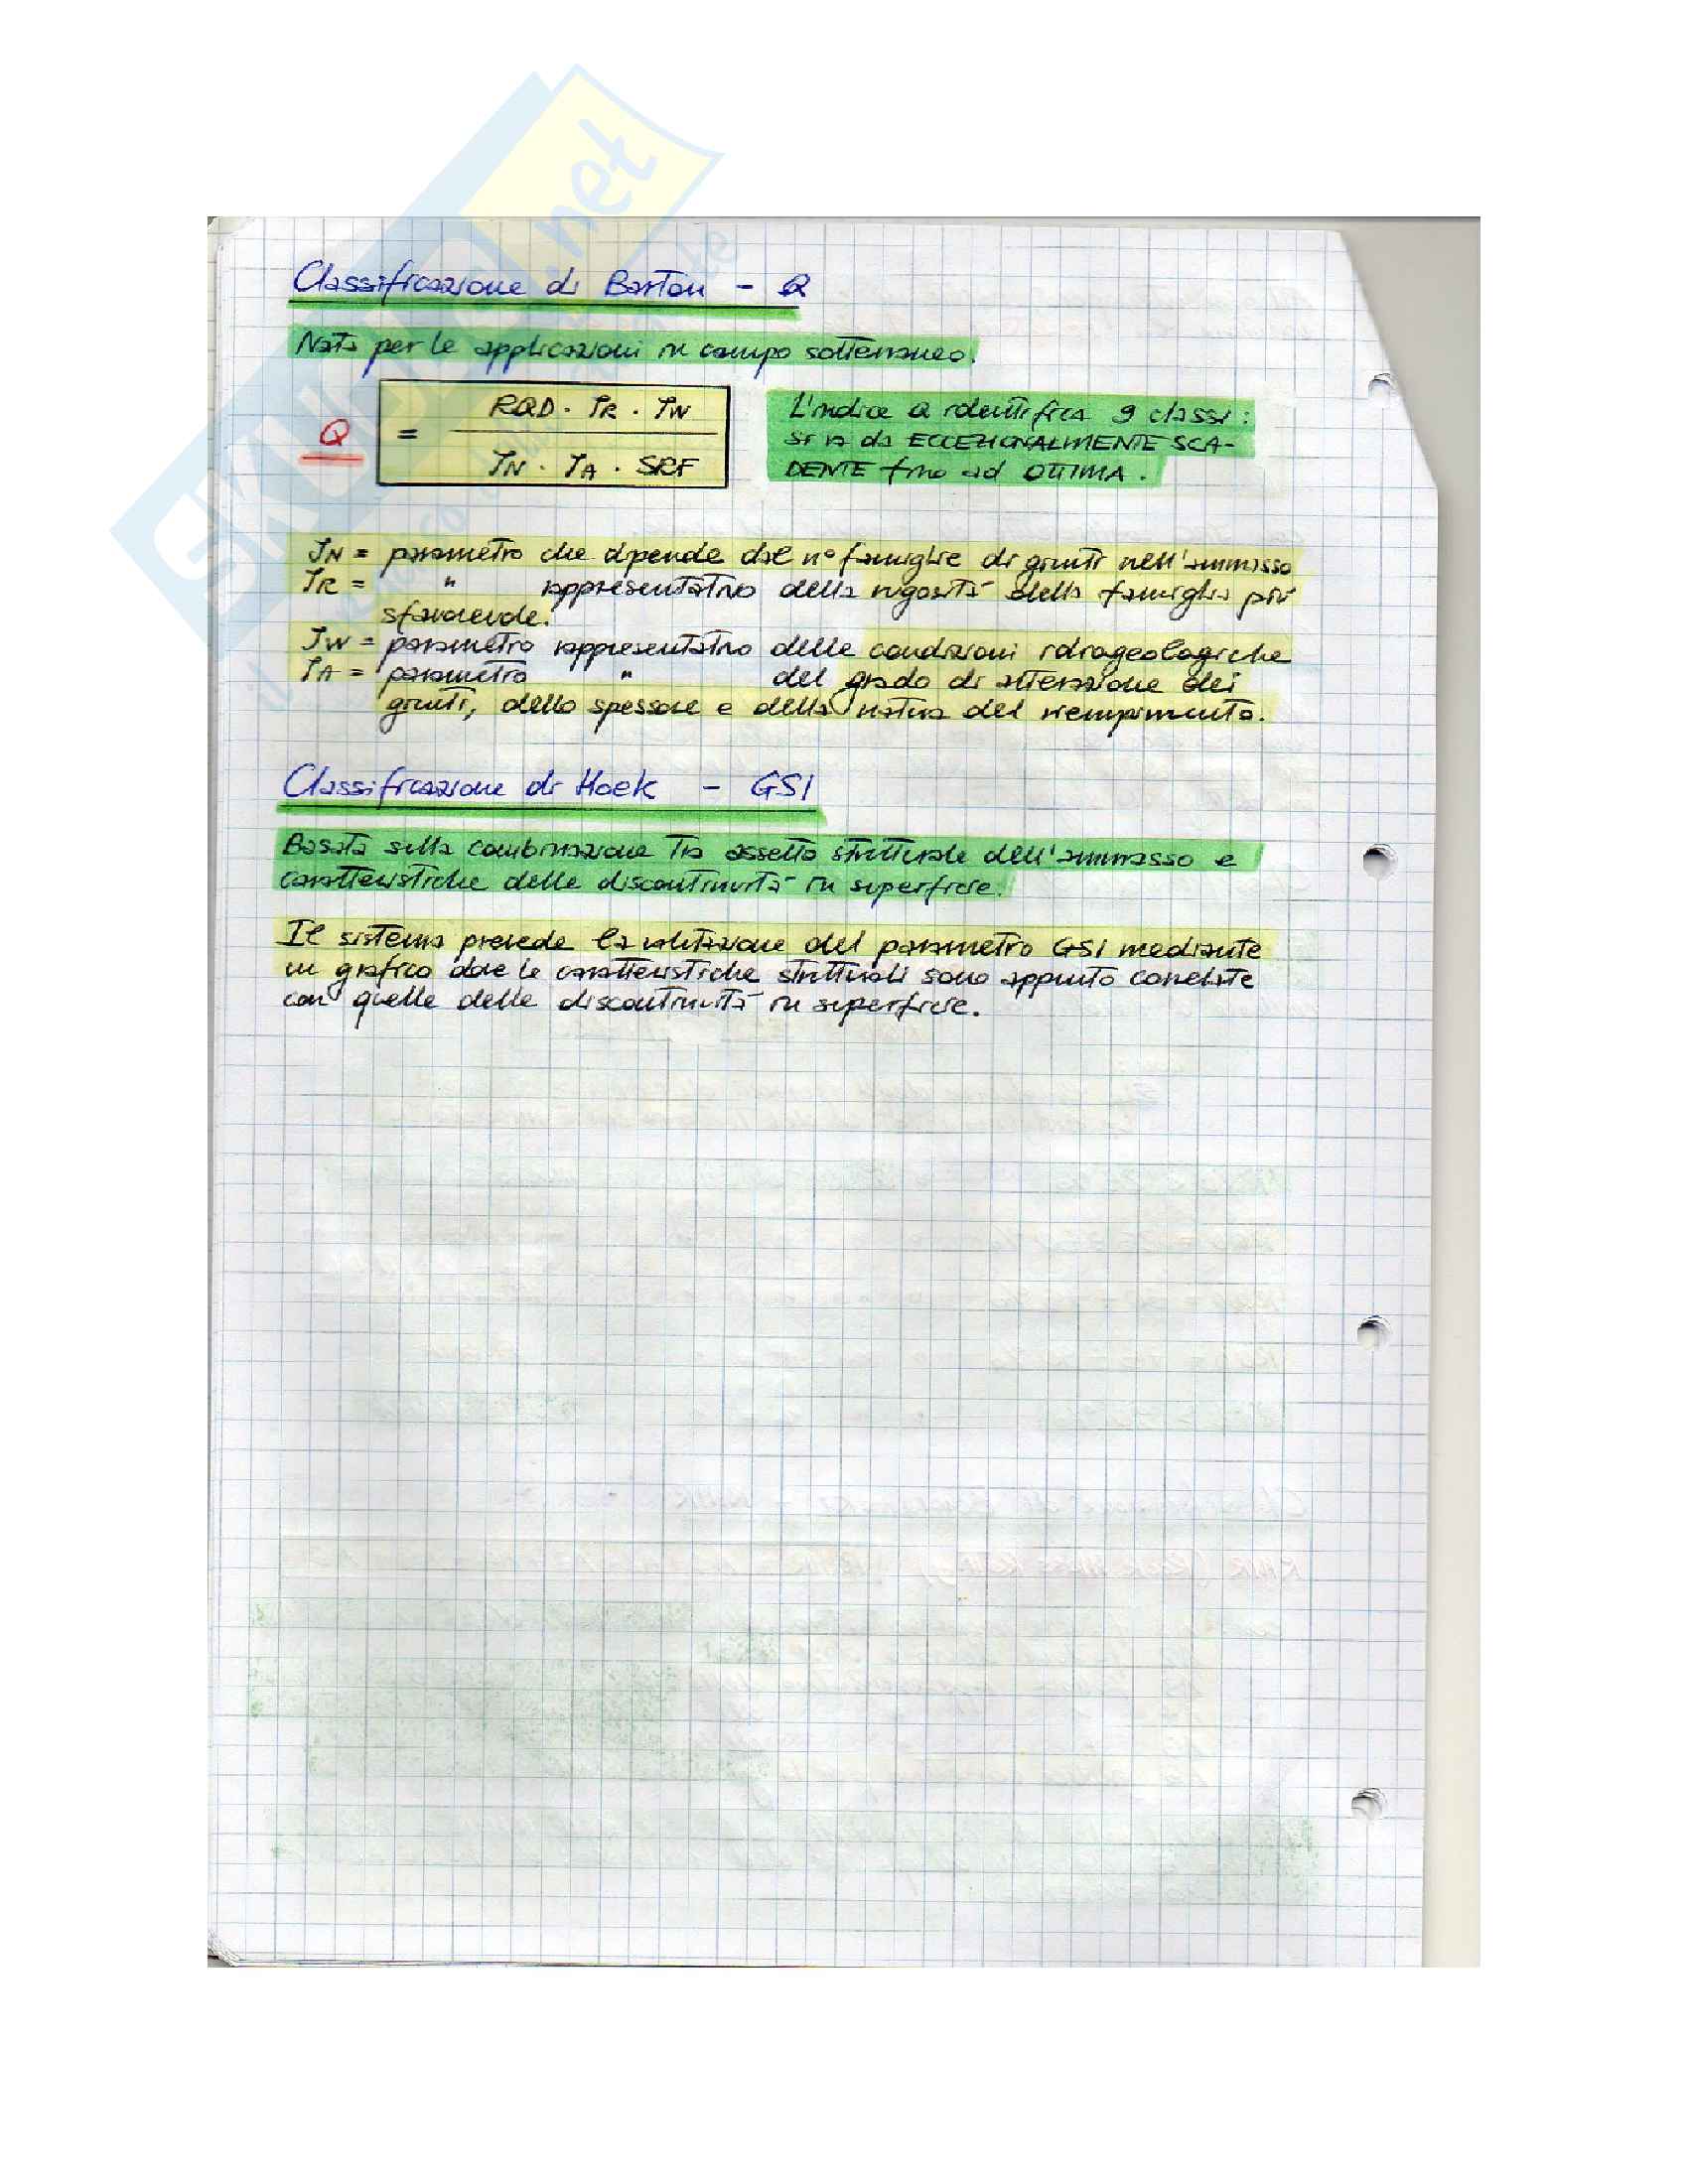 Classificazione di Barton - Q
Nata per le applicazioni in campo sotterraneo.
Q = RQD · JR · JW
JN · JA · SRF
L'indice Q identifica 9 classi:
si va da ECCEZIONALMENTE SCA-
DENTE fino ad OTTIMA.
JN = parametro che dipende dal n° famiglie di giunti nell'ammasso
JR = " rappresentativo della rugosità della famiglia più
sfavorevole.
JW = parametro rappresentativo delle condizioni idrogeologiche
JA = parametro " del grado di alterazione dei
giunti, dello spessore e della natura del riempimento.
Classificazione di Hoek - GSI
Basata sulla combinazione tra assetto strutturale dell'ammasso e
caratteristiche delle discontinuità in superficie.
Il sistema prevede la valutazione del parametro GSI mediante
un grafico dove le caratteristiche strutturali sono appunto correlate
con quelle delle discontinuità in superficie.
SKUOLA.net